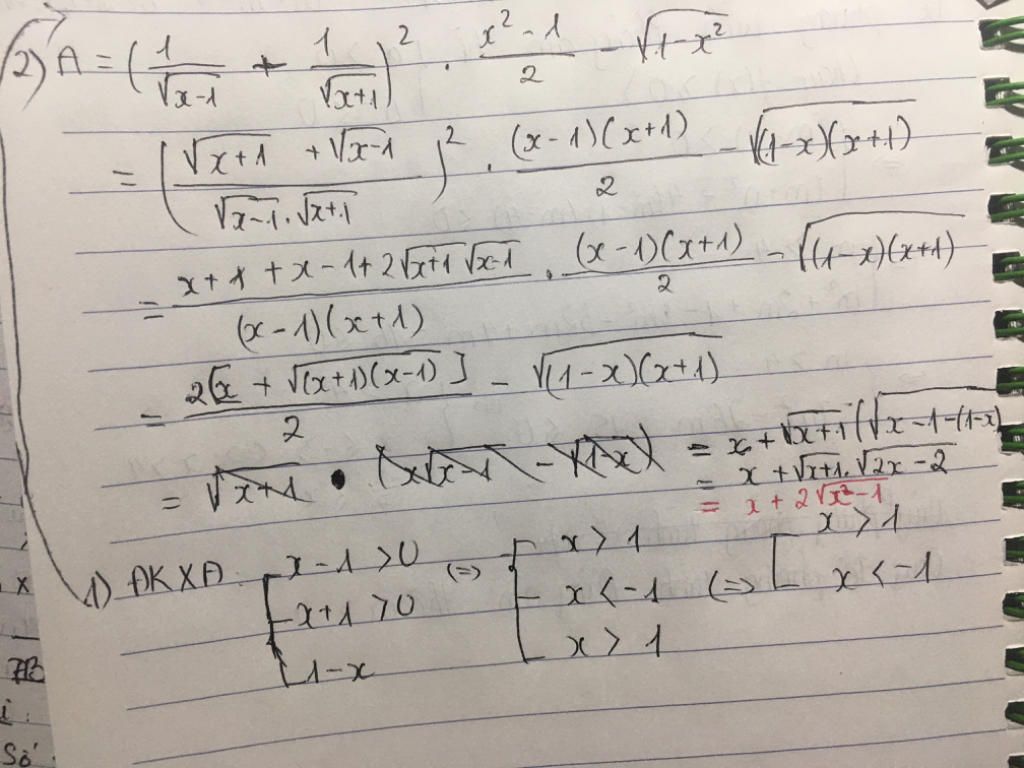 2) A = (1/√(x-1) + 1/√(x+1))² . (x² - 1)/2 - √(1-x²)
= ((√(x+1) + √(x-1))/(√(x-1) . √(x+1)))² . ((x-1)(x+1))/2 - √((1-x)(x+1))
= (x+1 + x-1 + 2√(x+1) √(x-1))/((x-1)(x+1)) . ((x-1)(x+1))/2 - √((1-x)(x+1))
= (2[x + √((x+1)(x-1))])/2 - √((1-x)(x+1))
= √(x+1) • (x√(x-1) - √(1-x)) = x + √(x+1) (√(x-1-(1-x)
= x + √(x+1) . √(2x-2)
= x + 2√(x²-1)
1) ĐKXĐ: [ x-1 > 0 (=) [ x > 1 (=) [ x > 1
x+1 > 0 x < -1 x < -1
1-x x > 1
x
AB
i.
Số